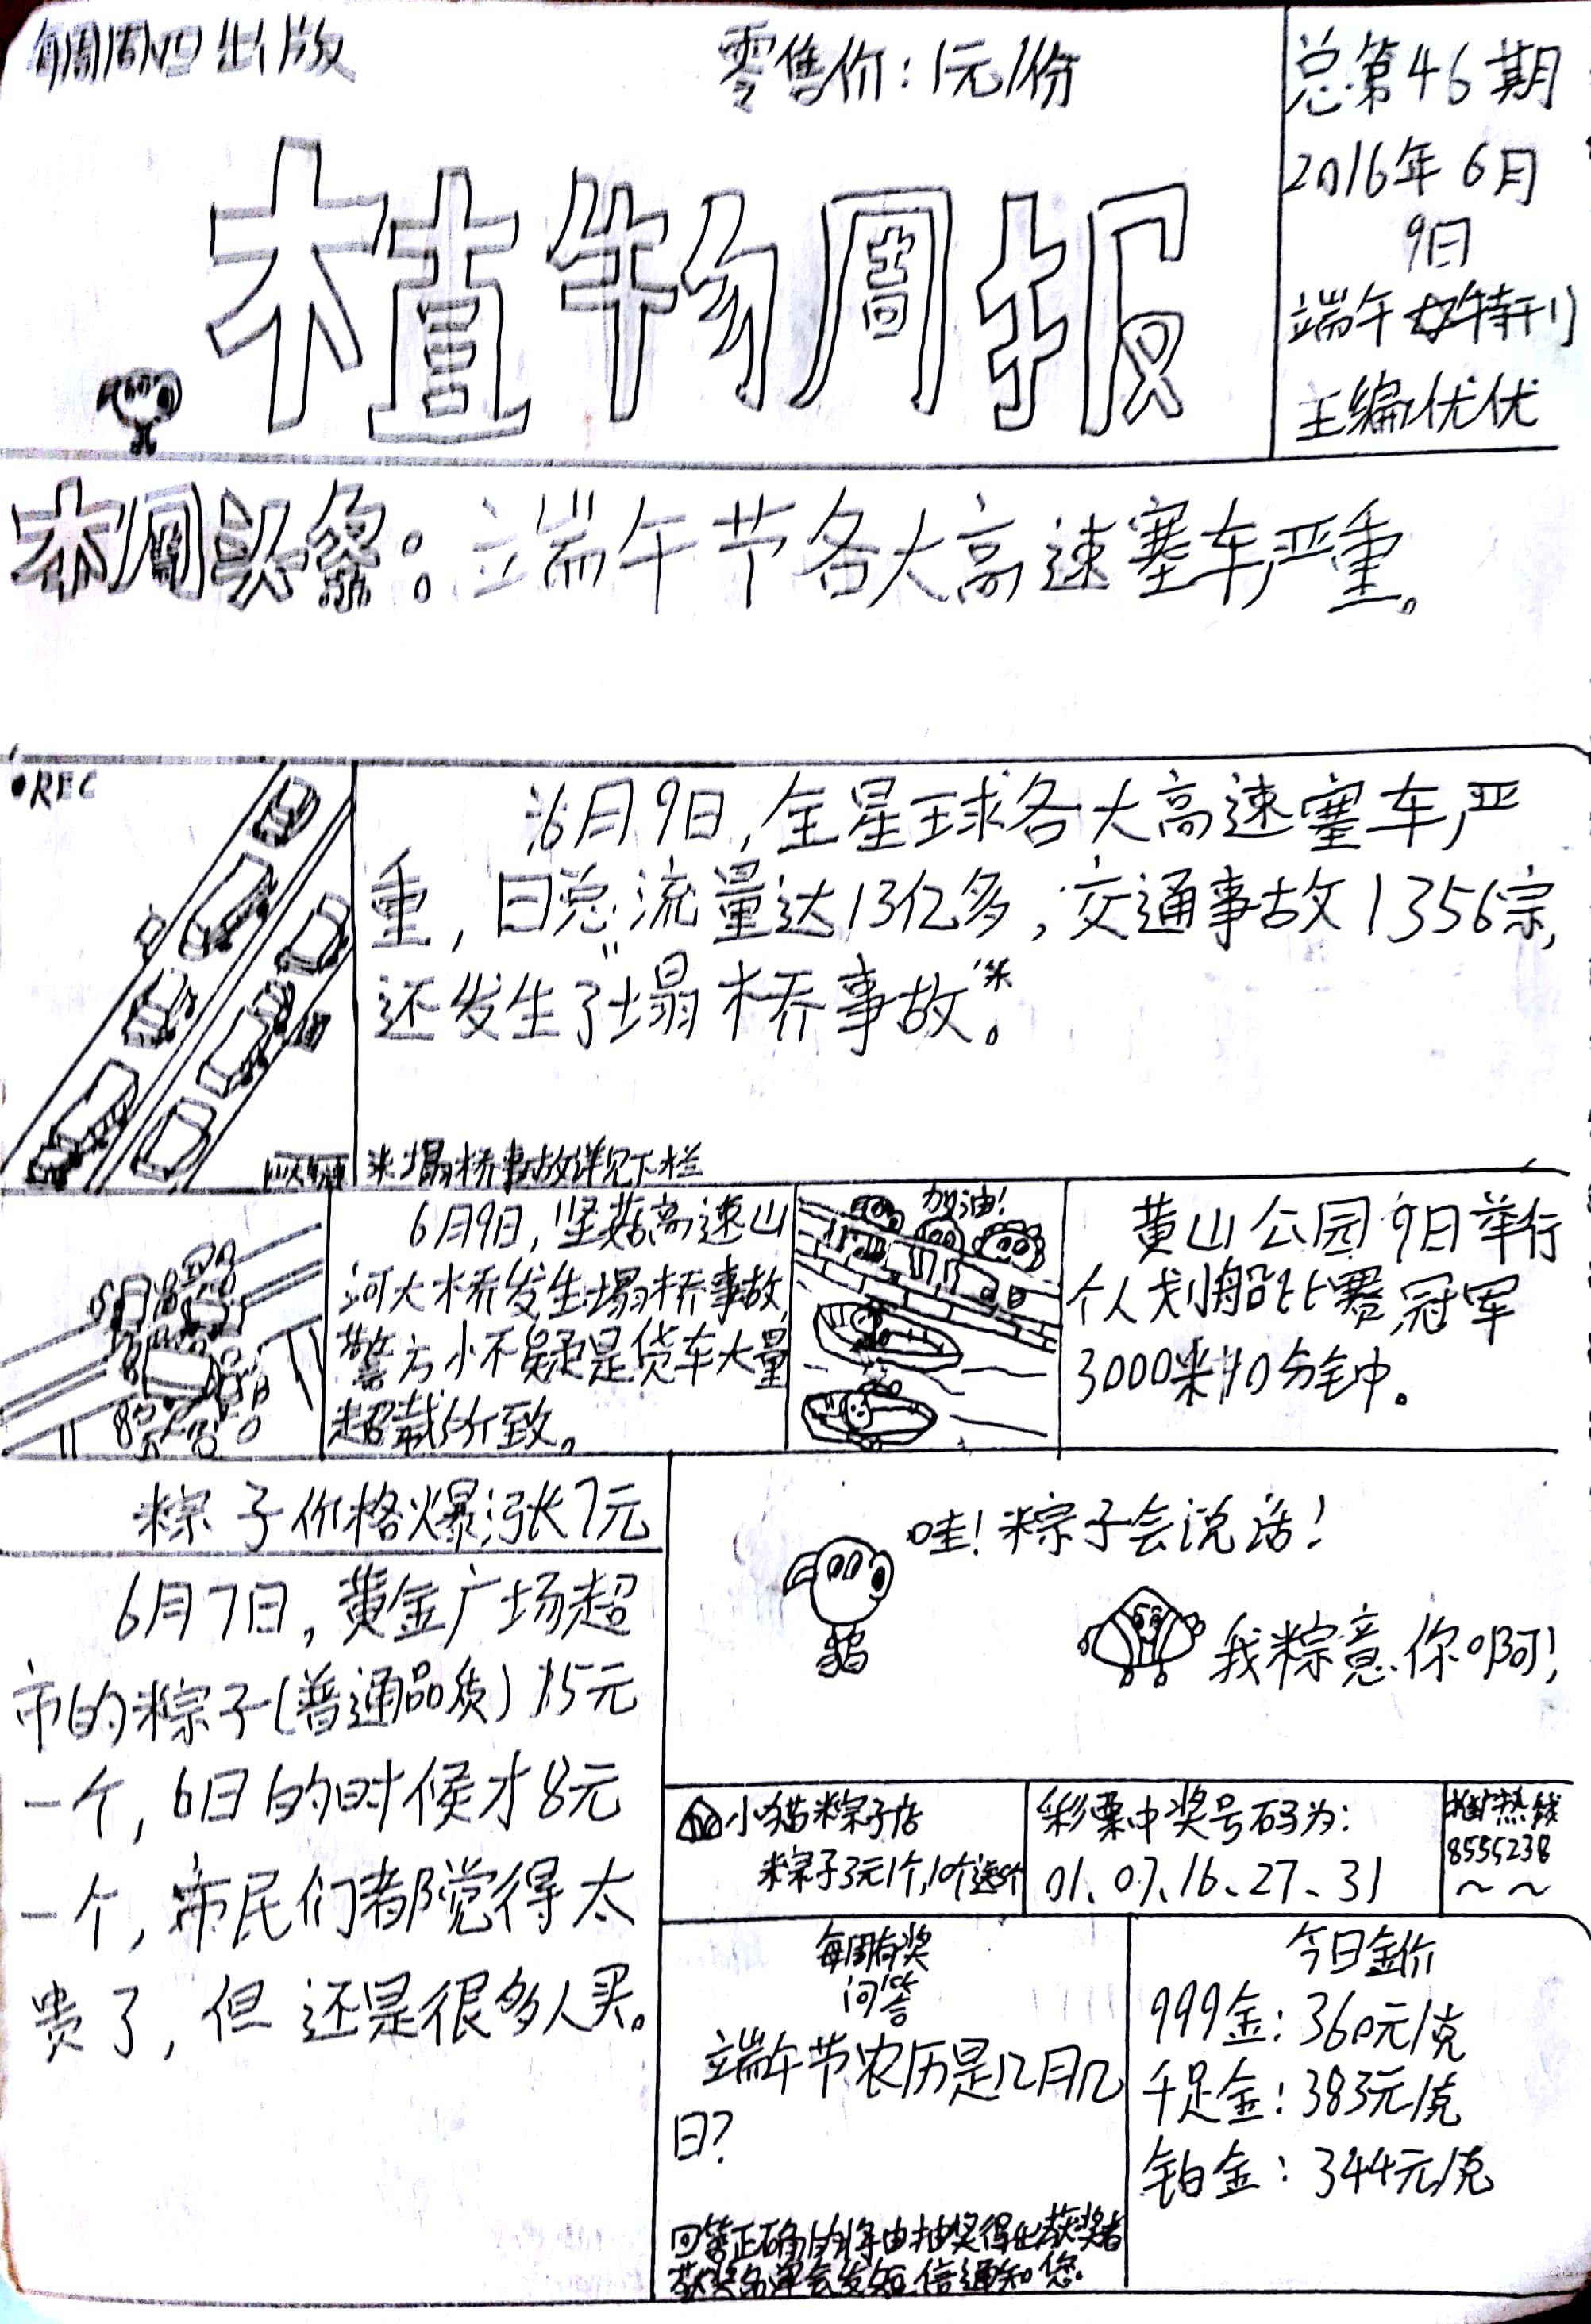 每周四出版
零售价：1元/份
总第46期
2016年6月
9日
端午特刊
主编优优
植物周报
本周头条：端午节各大高速塞车严重。
REC
6月9日，全星球各大高速塞车严
重，日总流量达13亿多，交通事故1356宗，
还发生了“塌桥事故”*。
*塌桥事故详见下栏
6月9日，坚菇高速山
河大桥发生塌桥事故，
警方小不疑是货车大量
超载所致。
加油！
黄山公园9日举行
个人划船比赛，冠军
3000米10分钟。
粽子价格爆涨7元
6月7日，黄金广场超
市的粽子(普通品质)15元
一个，6日的时候才8元
一个，市民们都觉得太
贵了，但还是很多人买。
哇！粽子会说话！
我粽意你啊！
小猫粽子店
粽子3元1个,10个送
彩票中奖号码为：
01、07、16、27、31
热线
8555238
～～
每周有奖
问答
端午节农历是几月几
日？
回答正确的将由抽奖得出获奖者
获奖名单会发短信通知您.
今日金价
999金：360元/克
千足金：383元/克
铂金：344元/克